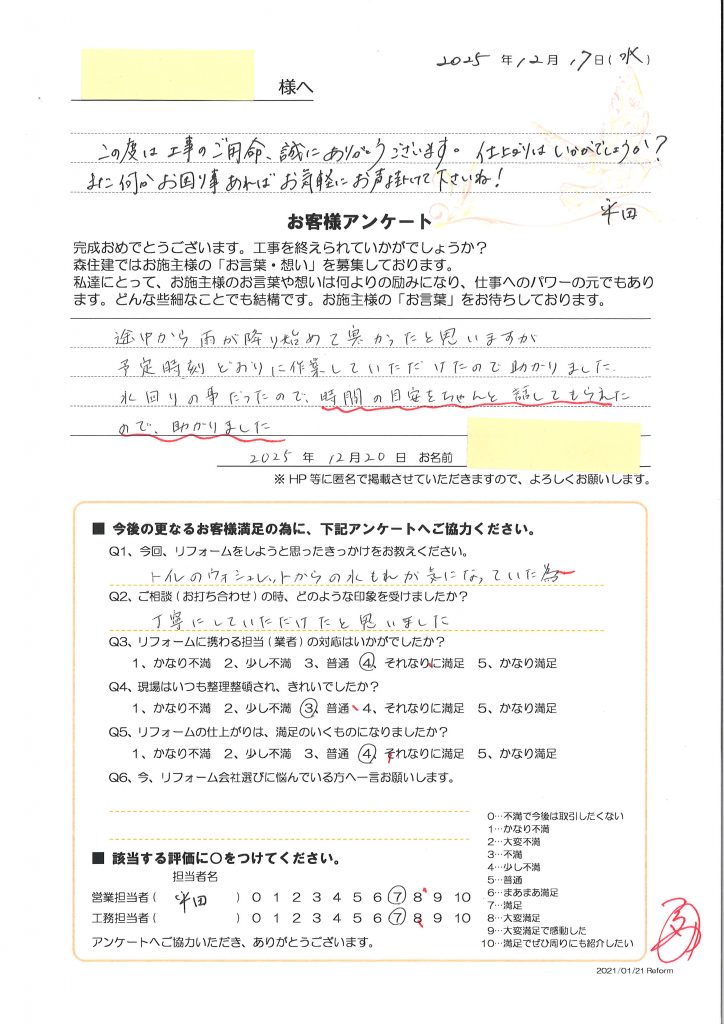 2025年12月17日(水)
様へ
この度は工事のご用命、誠にありがとうございます。仕上がりはいかがでしょうか?
また何かお困り事あればお気軽にお声掛けて下さいね!
平田
お客様アンケート
完成おめでとうございます。工事を終えられていかがでしょうか?
森住建ではお施主様の「お言葉・想い」を募集しております。
私達にとって、お施主様のお言葉や想いは何よりの励みになり、仕事へのパワーの元でもあり
ます。どんな些細なことでも結構です。お施主様の「お言葉」をお待ちしております。
途中から雨が降り始めて寒かったと思いますが
予定時刻どおりに作業していただけたので助かりました.
水回りの事だったので、時間の目安をちゃんと話してもらえた
ので、助かりました
2025年12月20日 お名前
※HP等に匿名で掲載させていただきますので、よろしくお願いします。
■ 今後の更なるお客様満足の為に、下記アンケートへご協力ください。
Q1、今回、リフォームをしようと思ったきっかけをお教えください。
トイレのウォシュレットからの水もれが気になっていた為
Q2、ご相談(お打ち合わせ)の時、どのような印象を受けましたか?
丁寧にしていただけたと思いました
Q3、リフォームに携わる担当(業者)の対応はいかがでしたか?
1、かなり不満 2、少し不満 3、普通 4、それなりに満足 5、かなり満足
Q4、現場はいつも整理整頓され、きれいでしたか?
1、かなり不満 2、少し不満 3、普通 4、それなりに満足 5、かなり満足
Q5、リフォームの仕上がりは、満足のいくものになりましたか?
1、かなり不満 2、少し不満 3、普通 4、それなりに満足 5、かなり満足
Q6、今、リフォーム会社選びに悩んでいる方へ一言お願いします。
■ 該当する評価に○をつけてください。
担当者名
営業担当者( 平田 ) 0 1 2 3 4 5 6 7 8 9 10
工務担当者( ) 0 1 2 3 4 5 6 7 8 9 10
アンケートへご協力いただき、ありがとうございます。
0…不満で今後は取引したくない
1…かなり不満
2…大変不満
3…不満
4…少し不満
5…普通
6…まあまあ満足
7…満足
8…大変満足
9…大変満足で感動した
10…満足でぜひ周りにも紹介したい
2021/01/21 Reform